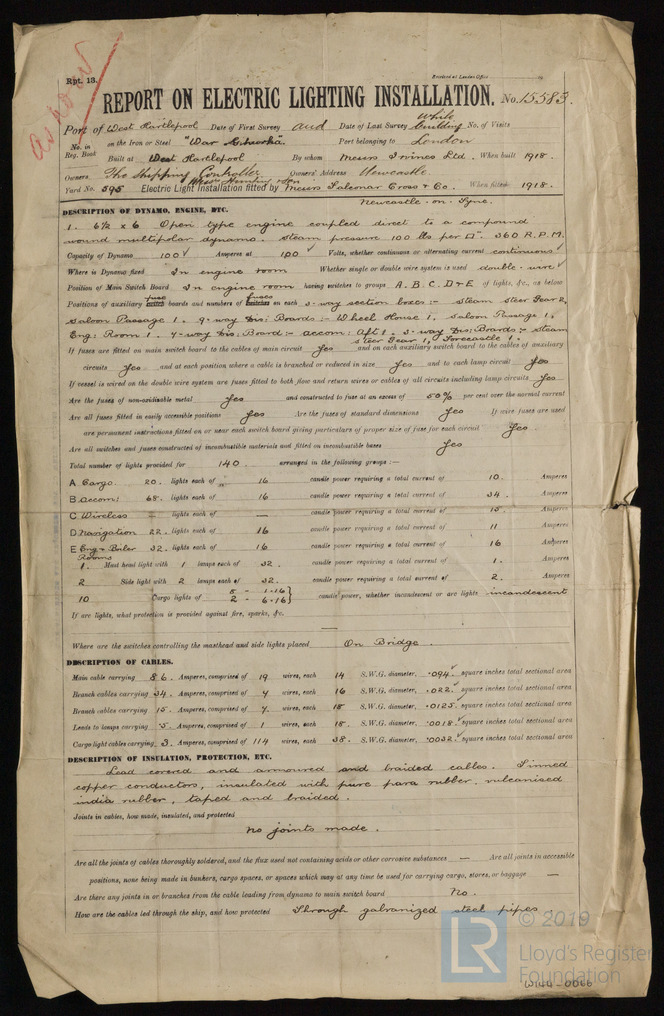 Rpt. 13.
Received at London Office
REPORT ON ELECTRIC LIGHTING INSTALLATION. No. 15583.
Port of West Hartlepool Date of First Survey and Date of Last Survey while building No. of Visits
No. in Reg. Book on the Iron or Steel "War" Port belonging to London
Built at West Hartlepool By whom Messrs Irvines Ltd. When built 1918.
Owners The Shipping Controller Owners' Address Newcastle
Yard No. 595 Electric Light Installation fitted by Messrs Falconar Cross & Co. When fitted 1918.
Newcastle-on-Tyne.
DESCRIPTION OF DYNAMO, ENGINE, ETC.
1. 6½ x 6 Open type engine coupled direct to a compound
wound multipolar dynamo. Steam pressure 100 lbs per □". 360 R.P.M.
Capacity of Dynamo 100 Amperes at 100 Volts, whether continuous or alternating current continuous
Where is Dynamo fixed In engine room Whether single or double wire system is used double-wire
Position of Main Switch Board In engine room having switches to groups A. B. C. D & E of lights, &c., as below
Positions of auxiliary fuse switch boards and numbers of fuses switches on each 3-way section boxes:- Steam Steer Gear 2,
Saloon Passage 1. 9-way Dis: Boards:- Wheel House 1. Saloon Passage 1,
Eng: Room 1. 4-way Dis: Board:- accom: Aft 1. 3-way Dis: Boards:- Steam
Steer Gear 1, Forecastle 1.
If fuses are fitted on main switch board to the cables of main circuit Yes and on each auxiliary switch board to the cables of auxiliary
circuits Yes and at each position where a cable is branched or reduced in size Yes and to each lamp circuit Yes
If vessel is wired on the double wire system are fuses fitted to both flow and return wires or cables of all circuits including lamp circuits Yes
Are the fuses of non-oxidisable metal Yes and constructed to fuse at an excess of 50% per cent over the normal current
Are all fuses fitted in easily accessible positions Yes Are the fuses of standard dimensions Yes If wire fuses are used
are permanent instructions fitted on or near each switch board giving particulars of proper size of fuse for each circuit Yes
Are all switches and fuses constructed of incombustible materials and fitted on incombustible bases Yes
Total number of lights provided for 140. arranged in the following groups:—
A Cargo. 20. lights each of 16 candle power requiring a total current of 10. Amperes
B accom: 68. lights each of 16 candle power requiring a total current of 34. Amperes
C Wireless — lights each of — candle power requiring a total current of 15. Amperes
D Navigation 22. lights each of 16 candle power requiring a total current of 11 Amperes
E Eng & Boiler Rooms 32. lights each of 16 candle power requiring a total current of 16 Amperes
1. Mast head light with 1 lamps each of 32. candle power requiring a total current of 1. Amperes
2 Side light with 2 lamps each of 32. candle power requiring a total current of 2. Amperes
10 Cargo lights of 8 - 1-16 } 2 - 6-16 } candle power, whether incandescent or arc lights incandescent
If arc lights, what protection is provided against fire, sparks, &c. —
Where are the switches controlling the masthead and side lights placed On Bridge.
DESCRIPTION OF CABLES.
Main cable carrying 86. Amperes, comprised of 19 wires, each 14 S.W.G. diameter, .094 square inches total sectional area
Branch cables carrying 34. Amperes, comprised of 7 wires, each 16 S.W.G. diameter, .022. square inches total sectional area
Branch cables carrying 15. Amperes, comprised of 7. wires, each 18 S.W.G. diameter, .0125. square inches total sectional area
Leads to lamps carrying .5. Amperes, comprised of 1 wires, each 18. S.W.G. diameter, .0018. square inches total sectional area
Cargo light cables carrying 3. Amperes, comprised of 114 wires, each 38. S.W.G. diameter, .0032. square inches total sectional area
DESCRIPTION OF INSULATION, PROTECTION, ETC.
Lead covered and armoured and braided cables. Tinned
copper conductors, insulated with pure para rubber, vulcanised
india rubber, taped and braided.
Joints in cables, how made, insulated, and protected
No joints made.
Are all the joints of cables thoroughly soldered, and the flux used not containing acids or other corrosive substances — Are all joints in accessible
positions, none being made in bunkers, cargo spaces, or spaces which may at any time be used for carrying cargo, stores, or baggage —
Are there any joints in or branches from the cable leading from dynamo to main switch board No.
How are the cables led through the ship, and how protected Through galvanized steel pipes.
© 2019
LR
Lloyd's Register
Foundation
W144-0066